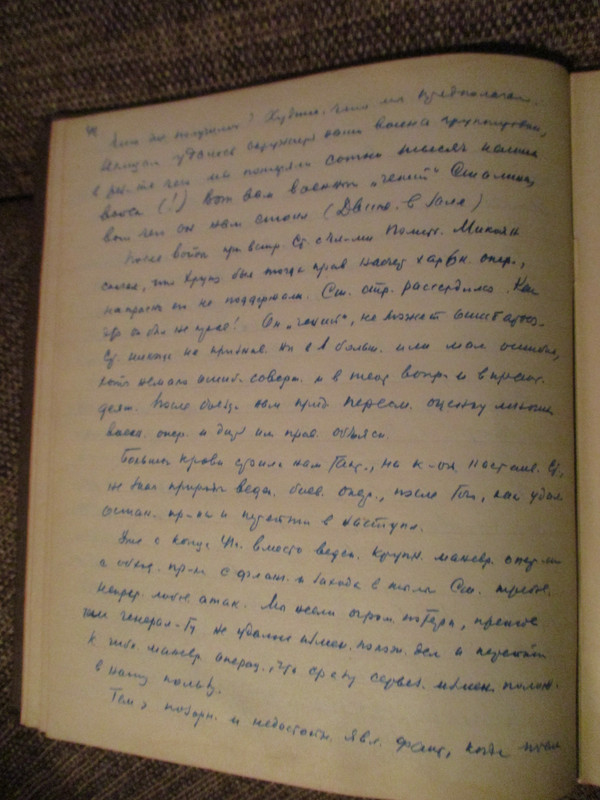 Что же получилось? Худшее, чем мы предполагали.
Немцам удалось окружить наши воен. группировки,
в рез-те чего мы потеряли сотни тысяч наших
войск (!) Вот вам военный „гений" Сталина,
вот чего он нам стоил (Движ. в зале)
После войны при встр. Ст. с чл-ми Полит. Микоян
сказал, что Хрущ. был тогда прав насчет харьк. опер.,
напрасно его не поддержали. Ст. стр. рассердился. Как
это он был не прав! Он „гений", не может ошибаться.
Ст. никогда не признав. ни в больш. или мал. ошибках,
хотя немало ошиб. соверш. и в теор. вопр. и в практ.
деят. После съезда нам прид. пересм. оценку многих
воен. опер. и дать им прав. объясн.
Большой крови стоила нам такт., на к-ой настаив. Ст.,
не зная природы веден. боев. опер., после того, как удал.
остан. пр-ка и перейти в наступл.
Уже с конца 41г. вместо веден. крупн. маневр. опер-ий
с обход. пр-ка с фланг. и захода в тылы Ст. требов.
непрер. лобов. атак. Мы несли огром. потери, прежде
чем генерал-ту не удалось измен. полож. дел и перейти
к гибк. маневр. операц., что сразу серьез. измен. полож.
в нашу пользу.
Тем > позорн. и недостойн. явл. факт, когда после